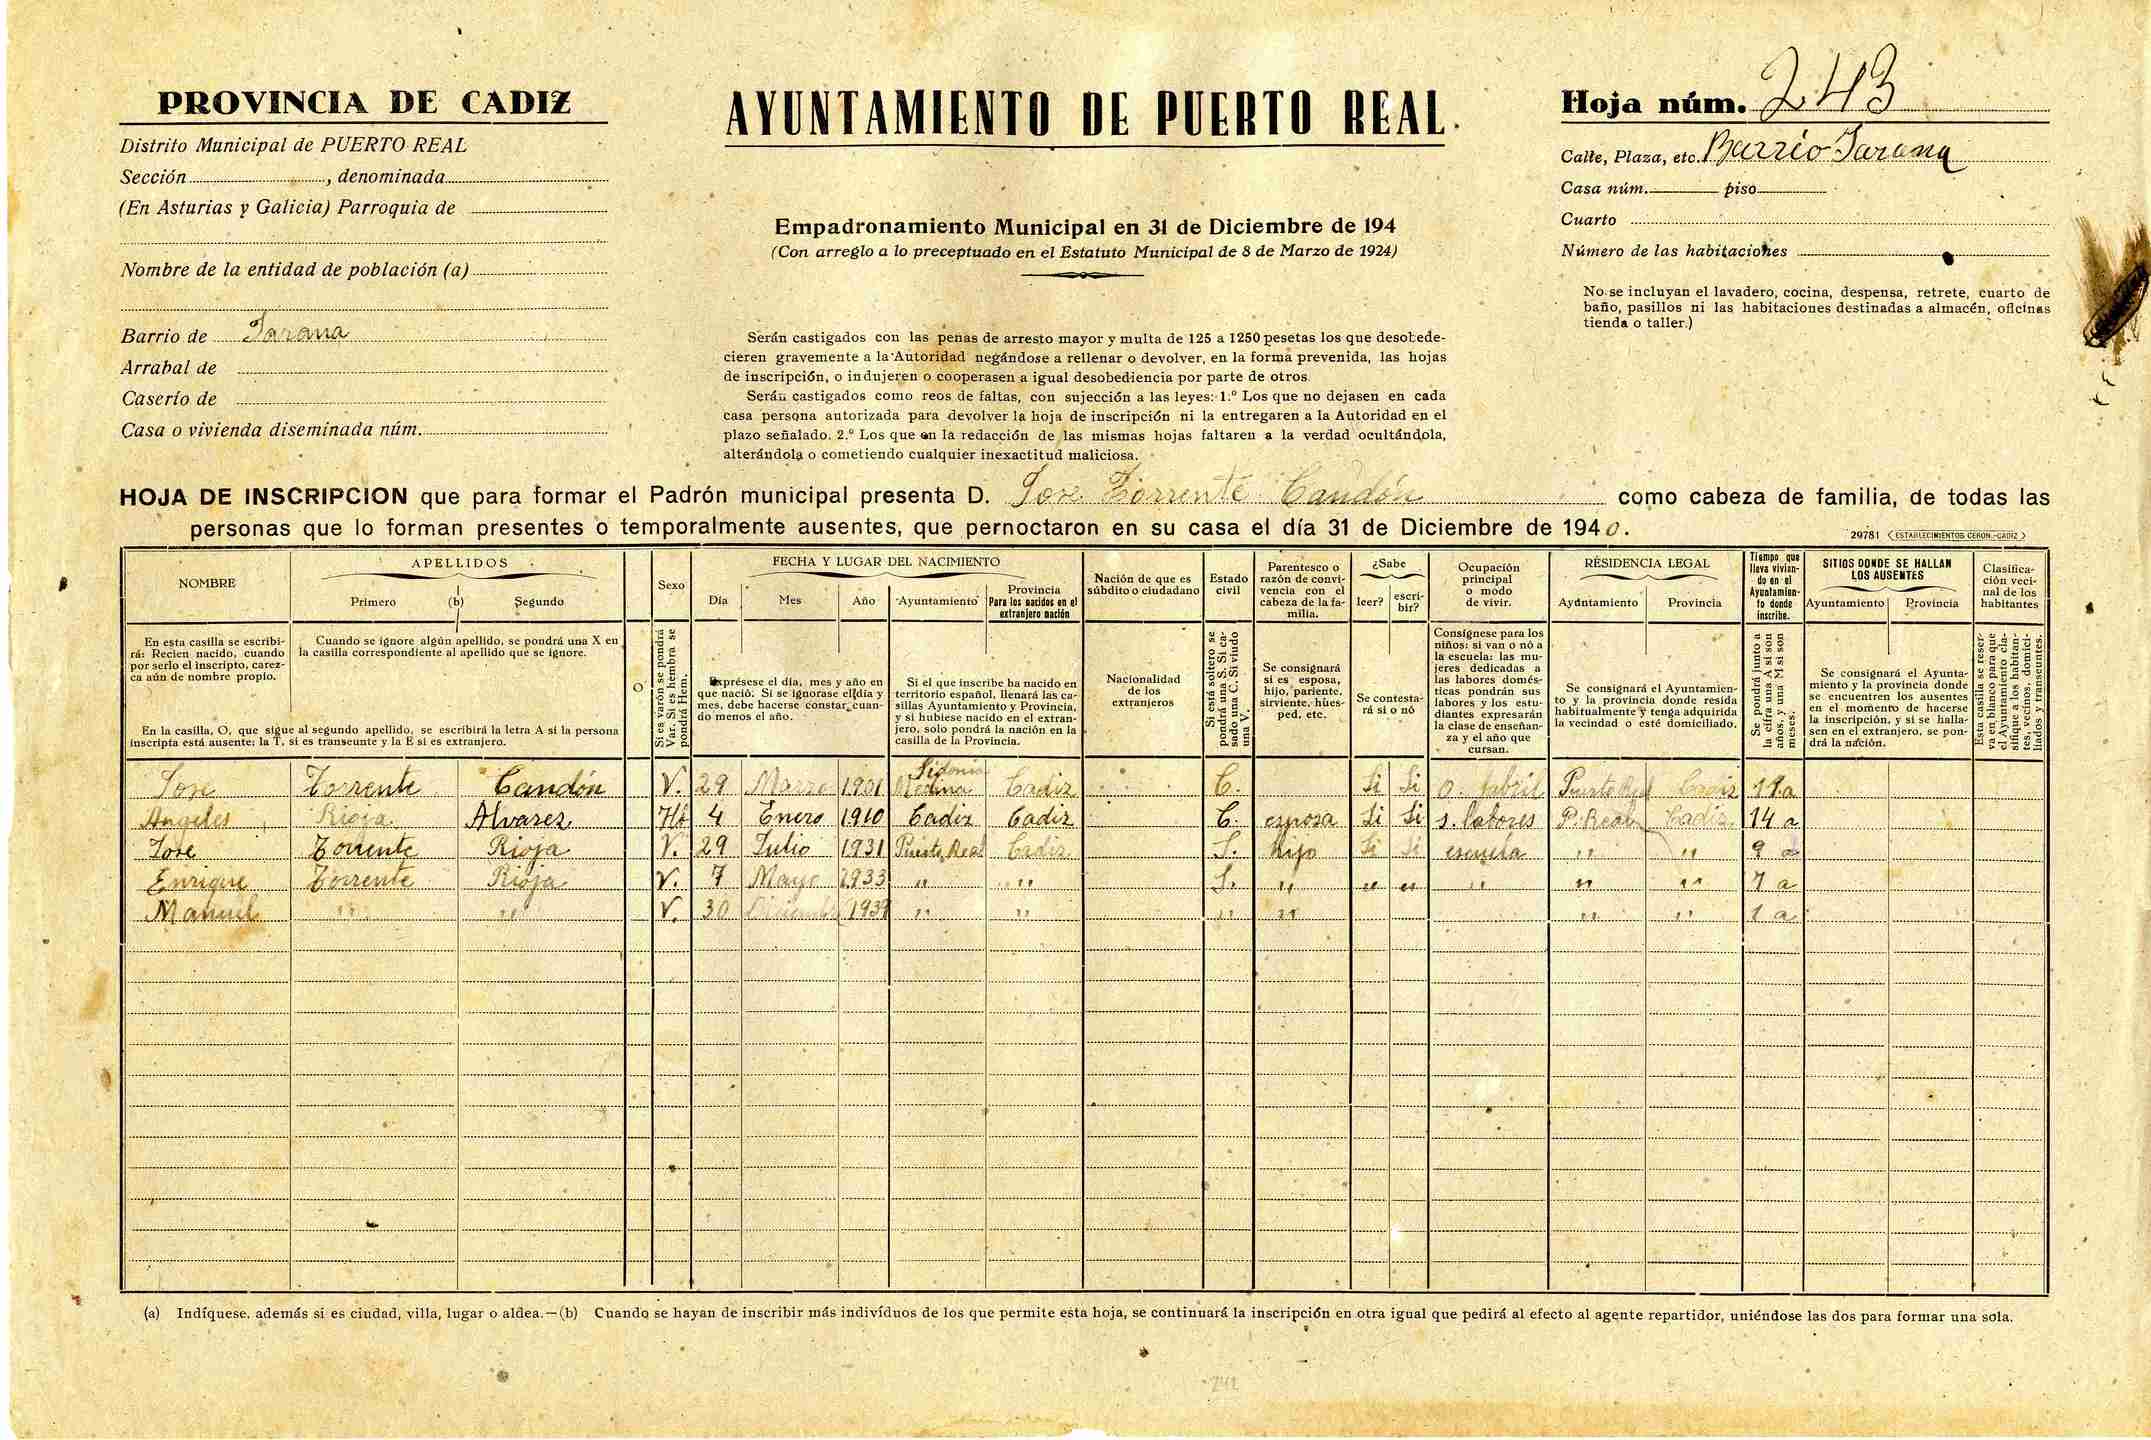 PROVINCIA DE CADIZ
Distrito Municipal de PUERTO REAL
Sección , denominada
(En Asturias y Galicia) Parroquia de
Nombre de la entidad de población (a)
Barrio de Jarana
Arrabal de
Caserío de
Casa o vivienda diseminada núm.
AYUNTAMIENTO DE PUERTO REAL
Empadronamiento Municipal en 31 de Diciembre de 194
(Con arreglo a lo preceptuado en el Estatuto Municipal de 8 de Marzo de 1924)
Serán castigados con las penas de arresto mayor y multa de 125 a 1250 pesetas los que desobede-
cieren gravemente a la Autoridad negándose a rellenar o devolver, en la forma prevenida, las hojas
de inscripción, o indujeren o cooperasen a igual desobediencia por parte de otros.
Serán castigados como reos de faltas, con sujección a las leyes: 1.º Los que no dejasen en cada
casa persona autorizada para devolver la hoja de inscripción ni la entregaren a la Autoridad en el
plazo señalado. 2.º Los que en la redacción de las mismas hojas faltaren a la verdad ocultándola,
alterándola o cometiendo cualquier inexactitud maliciosa.
Hoja núm. 243
Calle, Plaza, etc. Barrio Jarana
Casa núm. piso
Cuarto
Número de las habitaciones
No se incluyan el lavadero, cocina, despensa, retrete, cuarto de
baño, pasillos ni las habitaciones destinadas a almacén, oficinas
tienda o taller.)
HOJA DE INSCRIPCION que para formar el Padrón municipal presenta D. Jose Torrente Candón como cabeza de familia, de todas las
personas que lo forman presentes o temporalmente ausentes, que pernoctaron en su casa el día 31 de Diciembre de 1940.
29781 ESTABLECIMIENTOS CERON.-CADIZ
NOMBRE
APELLIDOS
Primero (b) Segundo
O
Sexo
FECHA Y LUGAR DEL NACIMIENTO
Día Mes Año Ayuntamiento
Provincia
Para los nacidos en el
extranjero nación
Nación de que es
súbdito o ciudadano
Estado
civil
Parentesco o
razón de convi-
vencia con el
cabeza de la fa-
milia.
¿Sabe
leer? escri-
bir?
Ocupación
principal
o modo
de vivir.
RESIDENCIA LEGAL
Ayuntamiento Provincia
Tiempo que
lleva vivien-
do en el
Ayuntamien-
to donde
inscribe.
SITIOS DONDE SE HALLAN
LOS AUSENTES
Ayuntamiento Provincia
Clasifica-
ción veci-
nal de los
habitantes
En esta casilla se escribi-
rá: Recien nacido, cuando
por serlo el inscripto, carez-
ca aún de nombre propio.
Cuando se ignore algún apellido, se pondrá una X en
la casilla correspondiente al apellido que se ignore.
En la casilla, O, que sigue al segundo apellido, se escribirá la letra A si la persona
inscripta está ausente; la T, si es transeunte y la E si es extranjero.
Si es varón se pondrá
Var. Si es hembra se
pondrá Hem.
Exprésese el día, mes y año en
que nació: Si se ignorase el día y
mes, debe hacerse constar cuan-
do menos el año.
Si el que inscribe ha nacido en
territorio español, llenará las ca-
sillas Ayuntamiento y Provincia,
y si hubiese nacido en el extran-
jero, solo pondrá la nación en la
casilla de la Provincia.
Nacionalidad
de los
extranjeros
Si está soltero se
pondrá una S. Si ca-
sado una C. Si viudo
una V.
Se consignará
si es esposa,
hijo, pariente,
sirviente, hués-
ped, etc.
Se contesta-
rá si o nó
Consígnese para los
niños: si van o nó a
la escuela: las mu-
jeres dedicadas a
las labores domés-
ticas pondrán sus
labores y los estu-
diantes expresarán
la clase de enseñan-
za y el año que
cursan.
Se consignará el Ayuntamien-
to y la provincia donde resida
habitualmente y tenga adquirida
la vecindad o esté domiciliado.
Se pondrá junto a
la cifra una A si son
años, y una M si son
meses.
Se consignará el Ayunta-
miento y la provincia donde
se encuentren los ausentes
en el momento de hacerse
la inscripción, y si se halla-
sen en el extranjero, se pon-
drá la nación.
Esta casilla se reser-
va en blanco para que
el Ayuntamiento cla-
sifique a los habitan-
tes, vecinos, domici-
liados y transeuntes.
Jose Torrente Candón V. 29 Marzo 1901 Medina Sidonia Cadiz C. Si Si O. fabril Puerto Real Cadiz 19 a
Angeles Rioja Alvarez 4 Enero 1910 Cadiz Cadiz C. esposa Si Si s. labores P. Real Cadiz 14 a
Jose Torrente Rioja V. 29 Julio 1931 Puerto Real Cadiz S. hijo Si Si escuela " " 9 a
Enrique Torrente Rioja V. 7 Mayo 1933 " " S. " " " " " " 7 a
Manuel " " V. 30 Diciembre 1939 " " " " " " 1 a
(a) Indíquese, además si es ciudad, villa, lugar o aldea.—(b) Cuando se hayan de inscribir más indivíduos de los que permite esta hoja, se continuará la inscripción en otra igual que pedirá al efecto al agente repartidor, uniéndose las dos para formar una sola.
242